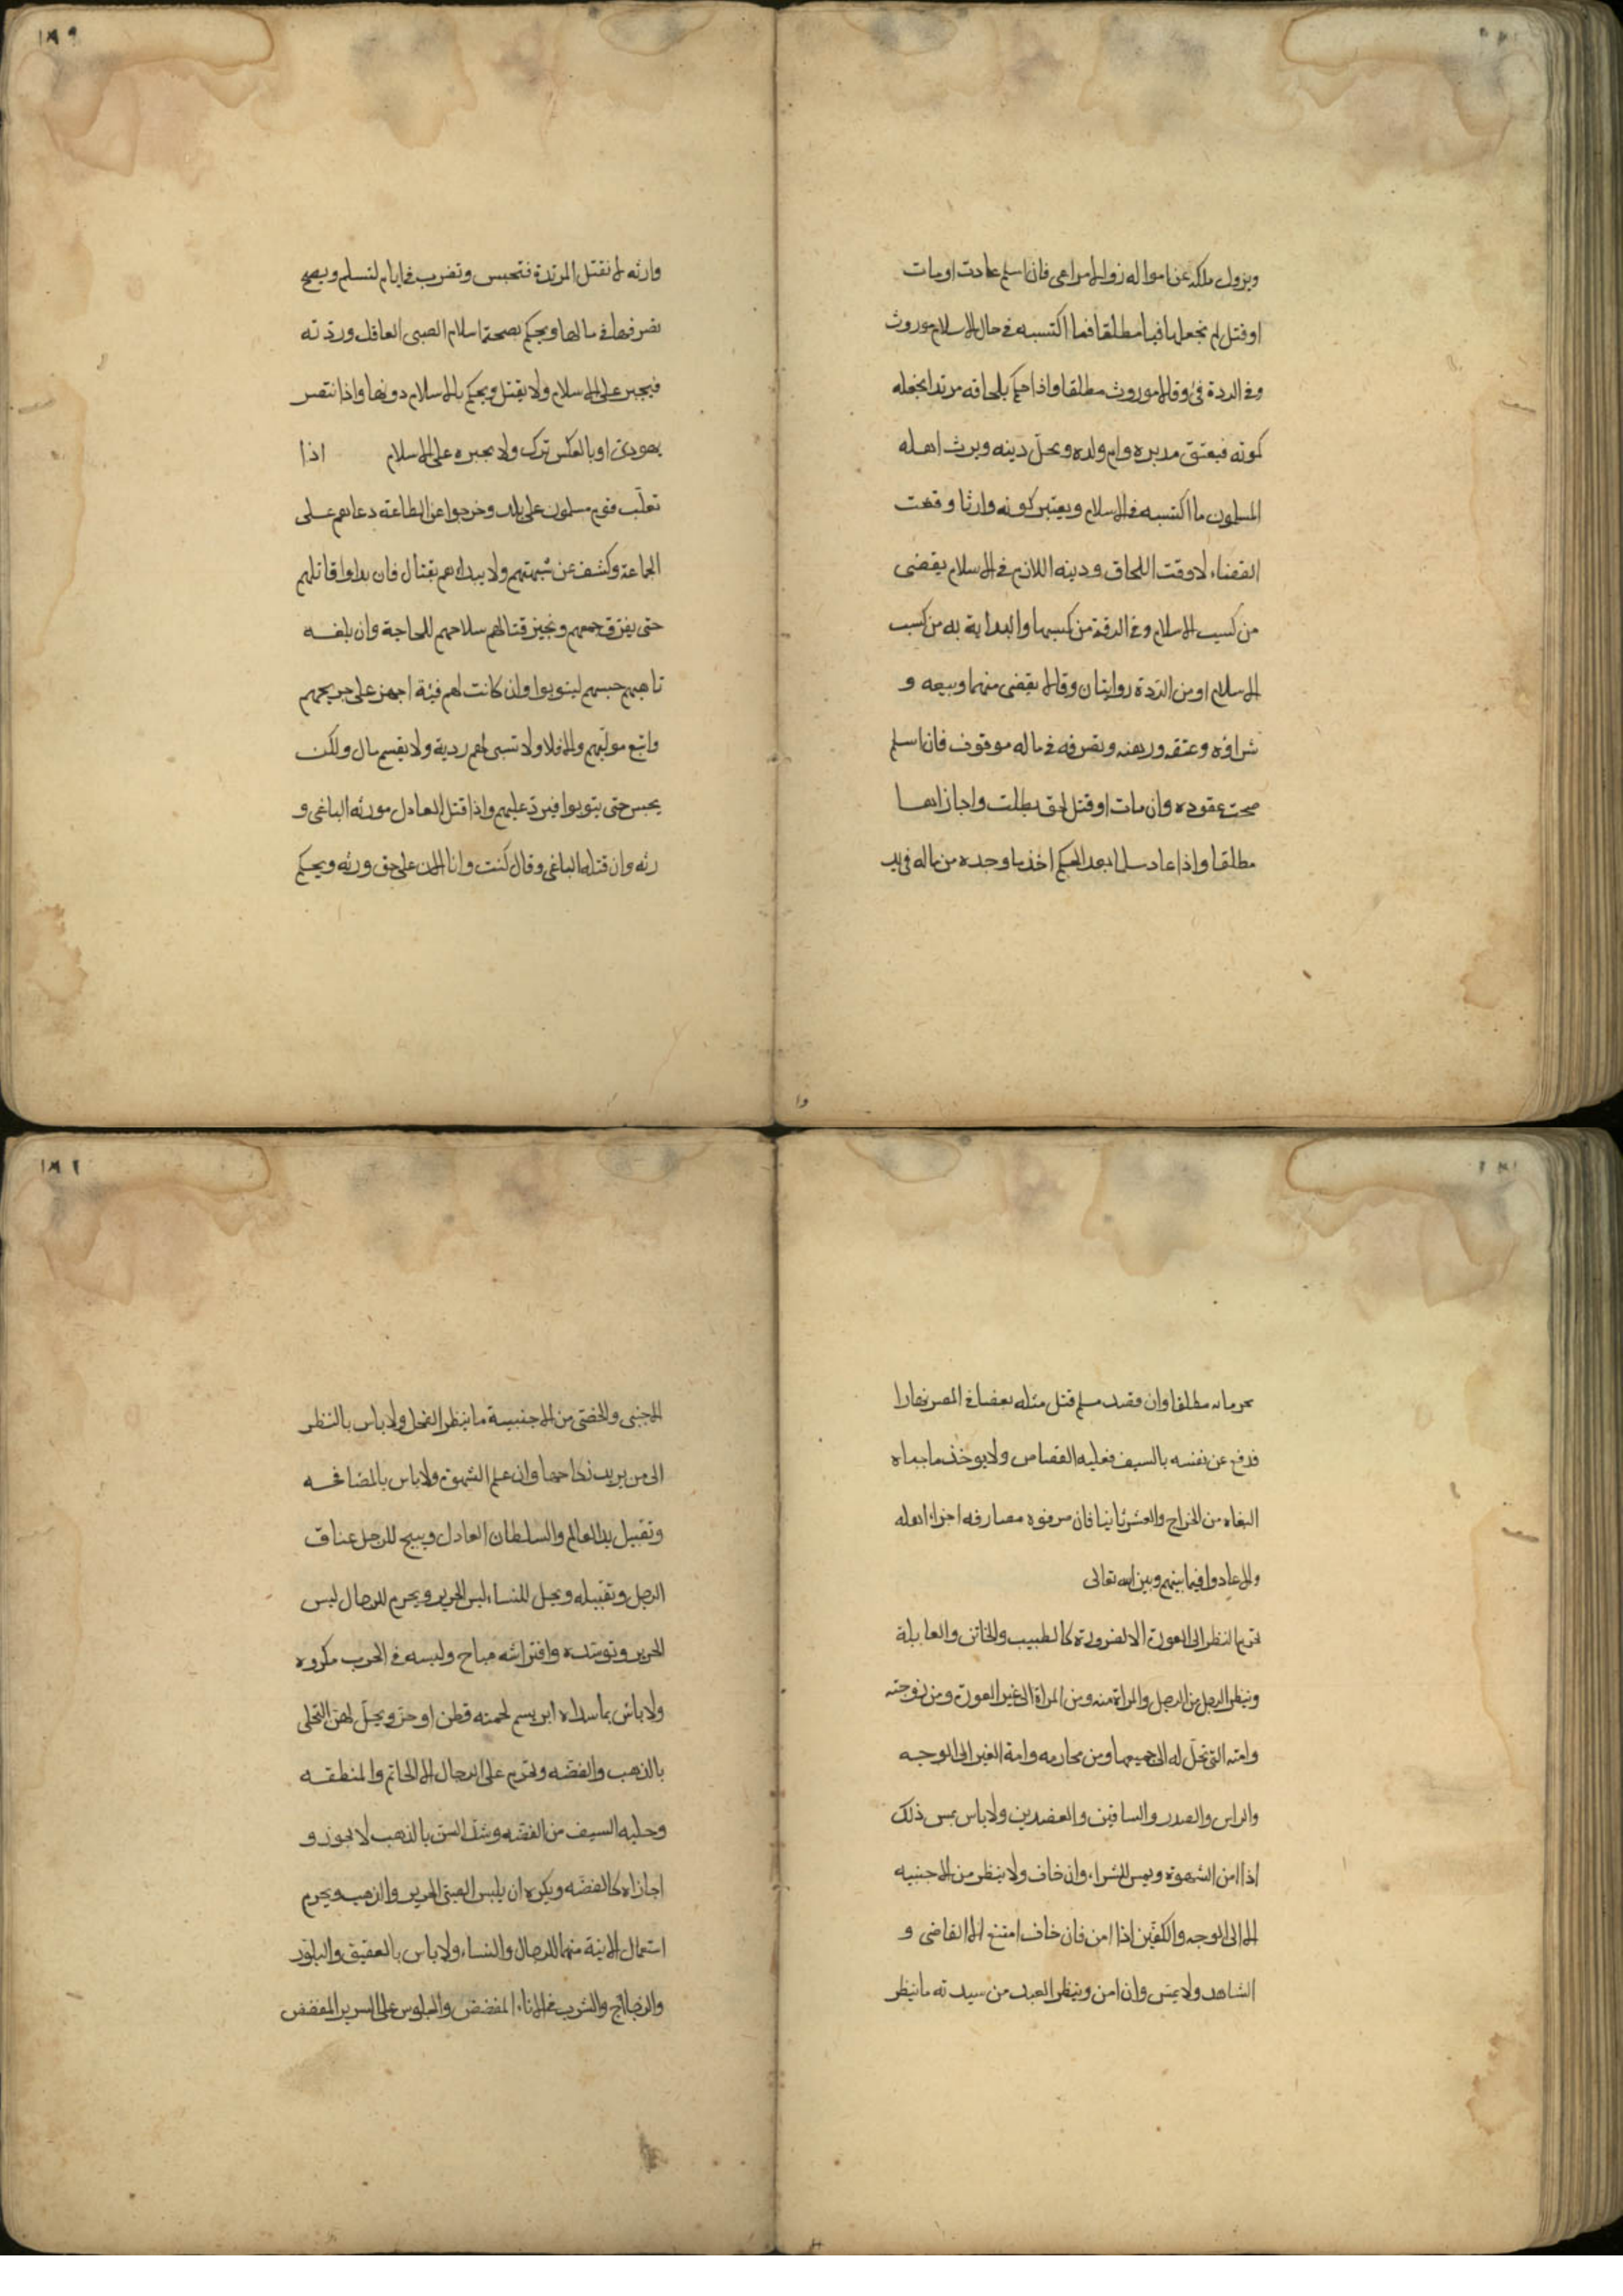 ويزول ملكه عن امواله زوالا مراعى فان اسلم عادت او مات
او قتل لم نجعل مافيا مطلقا فما اكتسبه فى حال الاسلام موروث
وفى الردة فئ وقالا موروث مطلقا واذا حكم بلحاقه مرتدا نجعله
كموته فيعتق مدبره وام ولده ويحل دينه ويرث اهله
المسلمون ما اكتسبه فى الاسلام ويعتبر كونه وارثا وقت
القضاء لا وقت اللحاق ودينه اللازم فى الاسلام يقضى
من كسب الاسلام وفى الردة من كسبها والبداية به من كسب
الاسلام او من الردة روايتان وقالا يقضى منهما وبيعه و
شراؤه وعتقه ورهنه وتصرفه فى ماله موقوف فان اسلم
صحت عقوده وان مات او قتل لحق بطلت واجازاها
مطلقا واذا عاد مسلما بعد الحكم اخذ ما وجده من ماله فى يد
١٨٩
وارثه لا نقتل المرتدة فتحبس وتضرب فى ايام لتسلم ويصح
تصرفها فى مالها ويحكم بصحة اسلام الصبى العاقل وردته
فيجبر على الاسلام ولا يقتل ويحكم بالاسلام دونها واذا تنصر
يهودى او بالعكس ترك ولا نجبره على الاسلام اذا
تغلب قوم مسلمون على بلد وخرجوا عن الطاعة دعاهم على
الجماعة وكشف عن شبهتهم ولا يبداهم بقتال فان بداوا قاتلهم
حتى يفرق جمعهم ونجيز قتالهم سلاحهم للحاجة وان بلغه
تاهبهم حبسهم ليتوبوا وان كانت لهم فئة اجهز على جريحهم
واتبع موليهم والا فلا ولا تسبى لهم ذرية ولا يقسم مال ولكن
يحبس حتى يتوبوا فيرد عليهم واذا قتل العادل مورثه الباغى و
رثه وان قتله الباغى وقال كنت وانا الان على حق ورثه ويحكم
وا
بحرمانه مطلقا وان قصد مسلم قتل مثله بعصا فى المصر نهارا
فدفع عن نفسه بالسيف فعليه القصاص ولا يوخذ ما جباه
البغاه من الخراج والعشر ثانيا فان صرفوه مصارفه اجزاء اهله
والا عادوا فيما بينهم وبين الله تعالى
نحرم النظر الى العورة الا لضرورة كالطبيب والخاتن والقابلة
وينظر الرجل من الرجل والمراة منه ومن المراة الى غير العورة ومن زوجته
وامته التى تحل له الى جميعها ومن محارمه وامة الغير الى الوجه
والراس والصدر والساقين والعضدين ولا باس بمس ذلك
اذا امن الشهوة ويمس للشراء وان خاف ولا ينظر من الاجنبيه
الا الى الوجه والكفين اذا امن فان خاف امتنع الا القاضى و
الشاهد ولا يمس وان امن وينظر العبد من سيدته ما ينظر
الاجنبى والخصى من الاجنبية ما ينظر الفحل ولا باس بالنظر
الى من يريد نكاحها وان علم الشهوة ولا باس بالمصافحه
وتقبيل يد العالم والسلطان العادل ويبيح للرجل عناق
الرجل وتقبيله ويحل للنساء لبس الحرير ويحرم للرجال لبس
الحرير وتوسده وافتراشه مباح ولبسه فى الحرب مكروه
ولا باس بما سداه ابريسم لحمته قطن او خز ويحل لهن التحلى
بالذهب والفضه ونحرم على الرجال الا الخاتم والمنطقه
وحليه السيف من الفضه وشد السن بالذهب لا نجوز و
اجازاه كالفضه ويكره ان يلبس الصبى الحرير والذهب ويحرم
استعمال الانية منهما للرجال والنساء ولا باس بالعقيق والبلور
والزجاج والشرب فى الاناء المفضض والجلوس على السرير المفضض